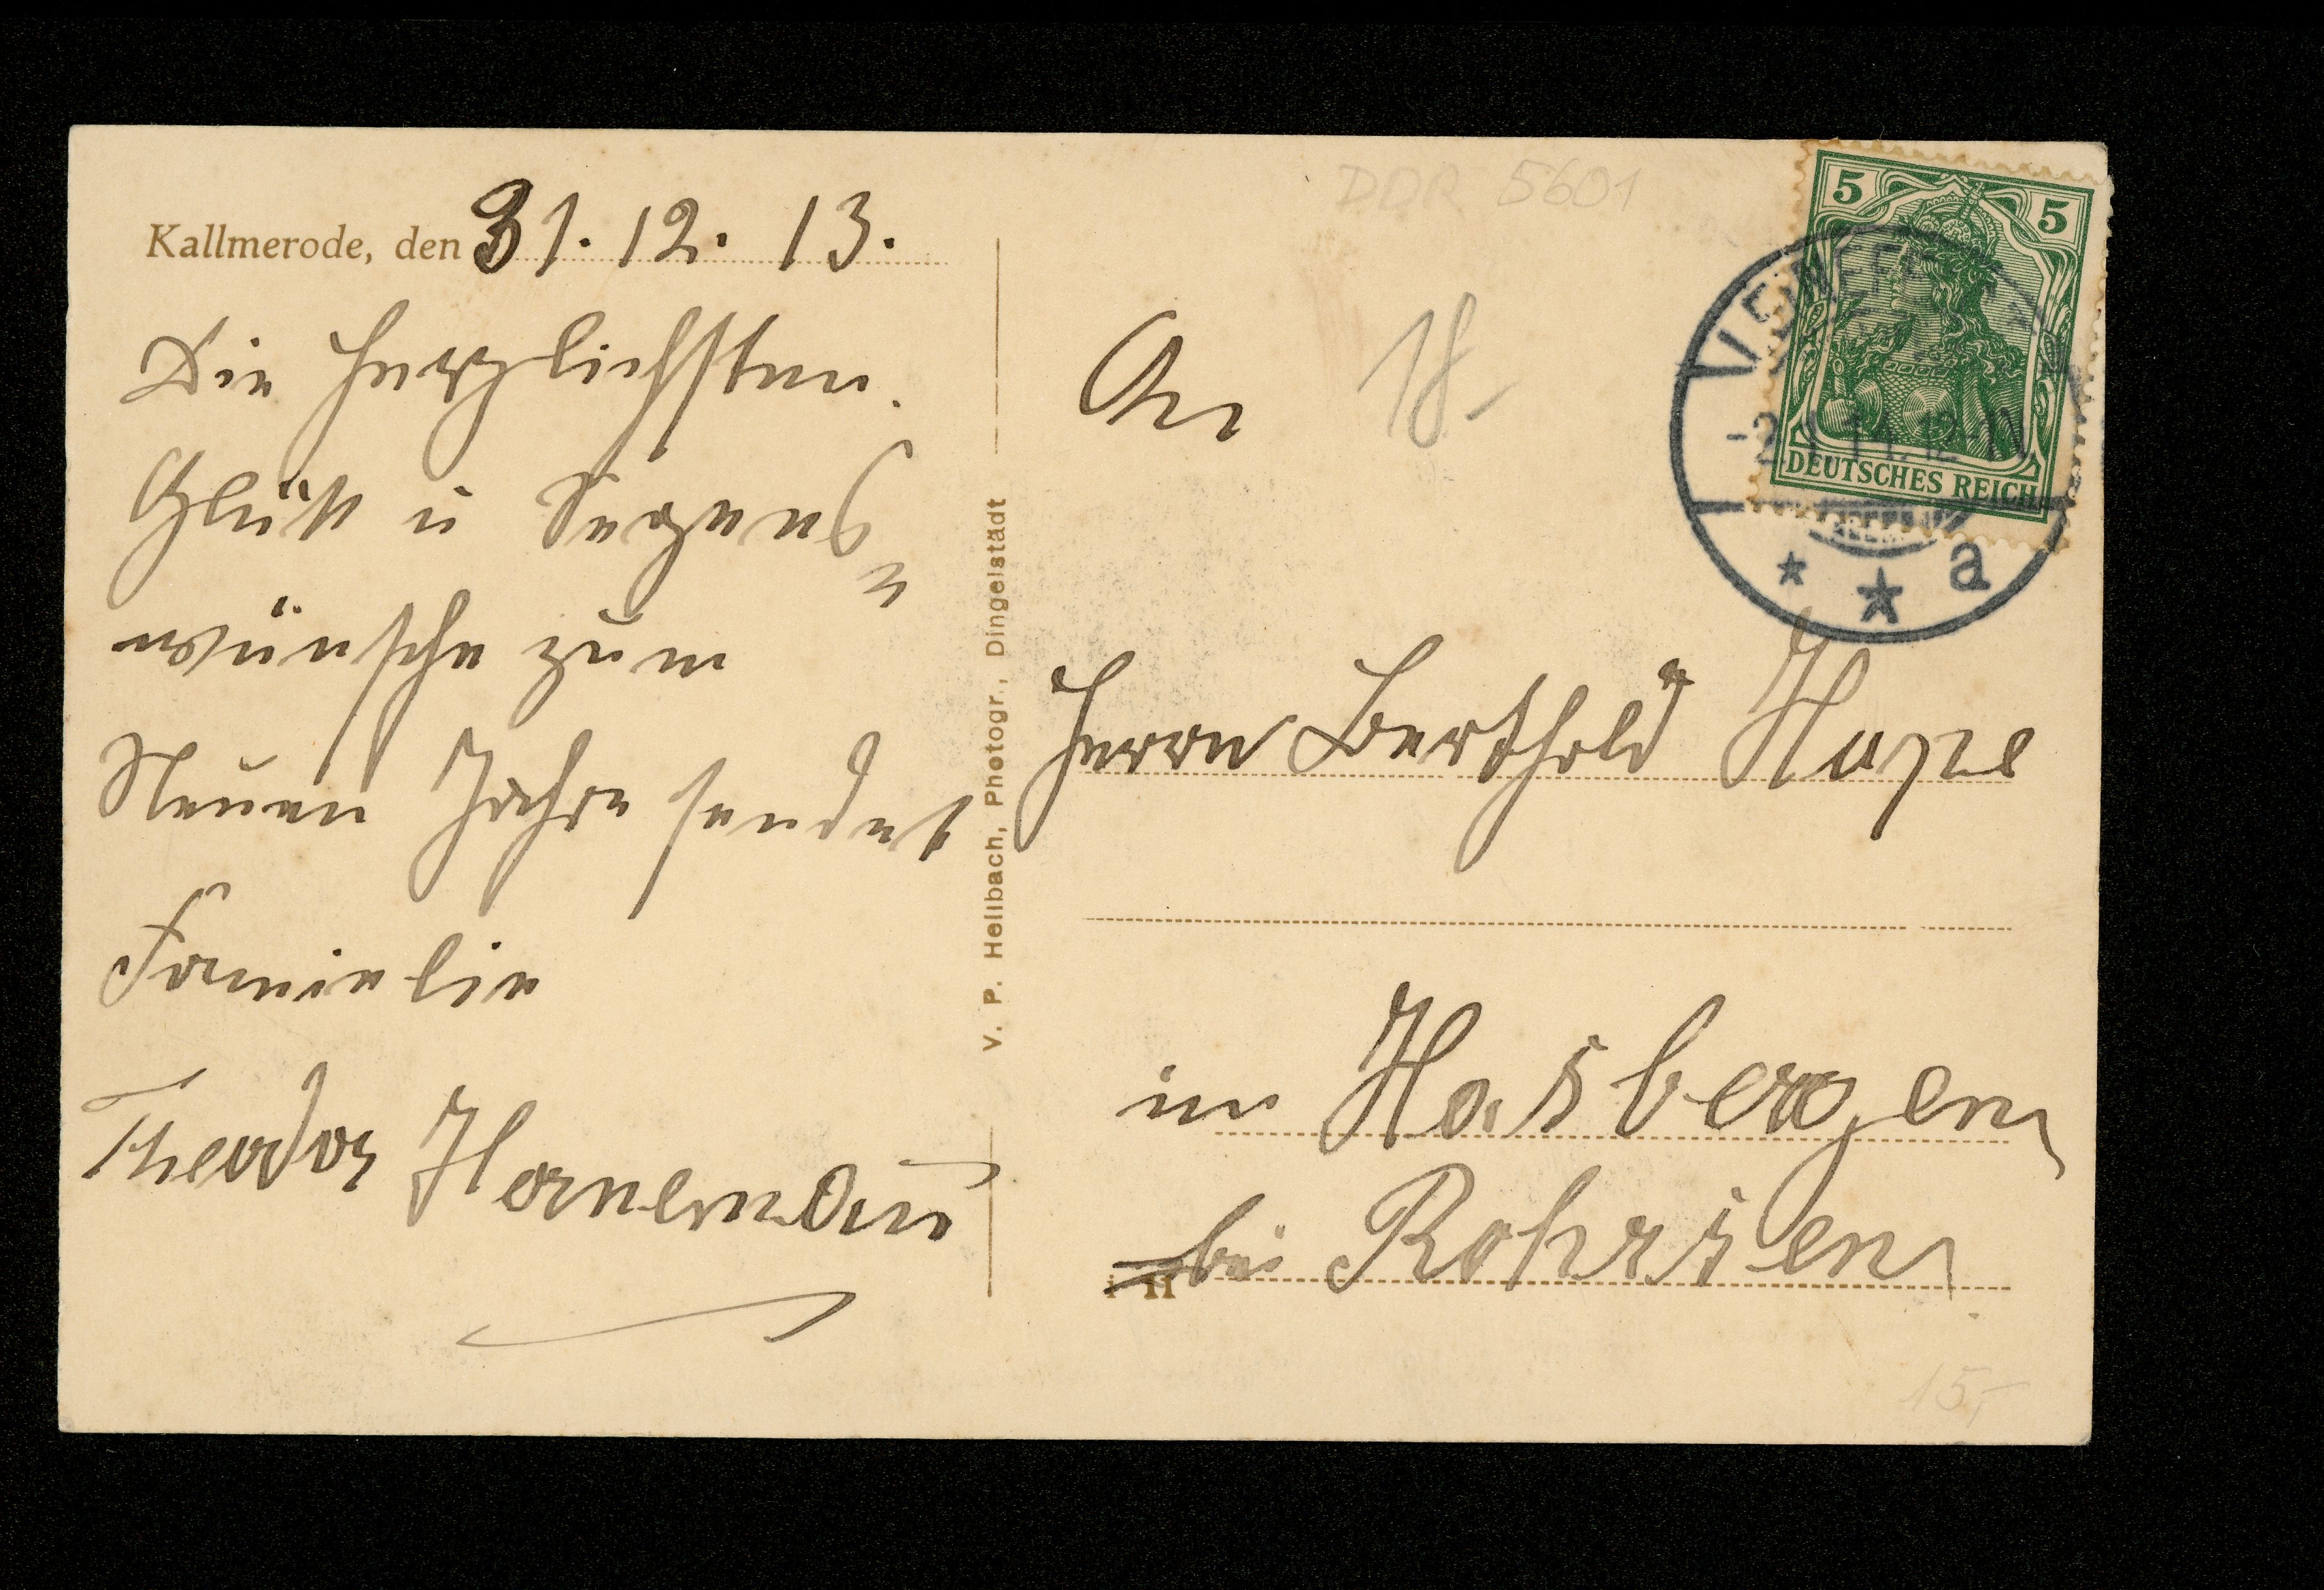 Kallmerode, den 31. 12. 13.
Die herzlichsten
Glück u Segens
wünsche zum
Neuen Jahre sendet
Famielie
Theodor Hornemann
V. P. Hellbach, Photogr., Dingelstädt
DDR 5601
18.-
An
Herrn Berthold Hope
in Hasbergen
bei Rohrsen
15,-
5 5
DEUTSCHES REICH
a